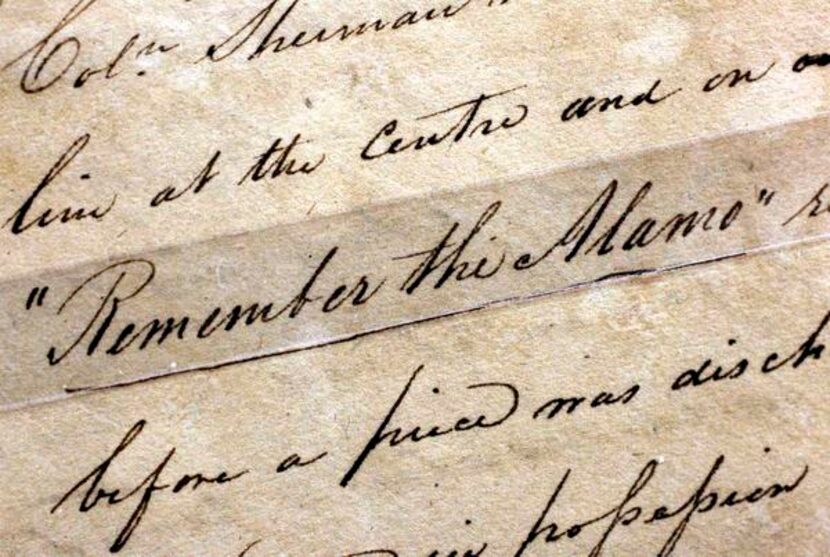 Coln Sherman
line at the centre and on
"Remember the Alamo"
before a piece was disch
possession